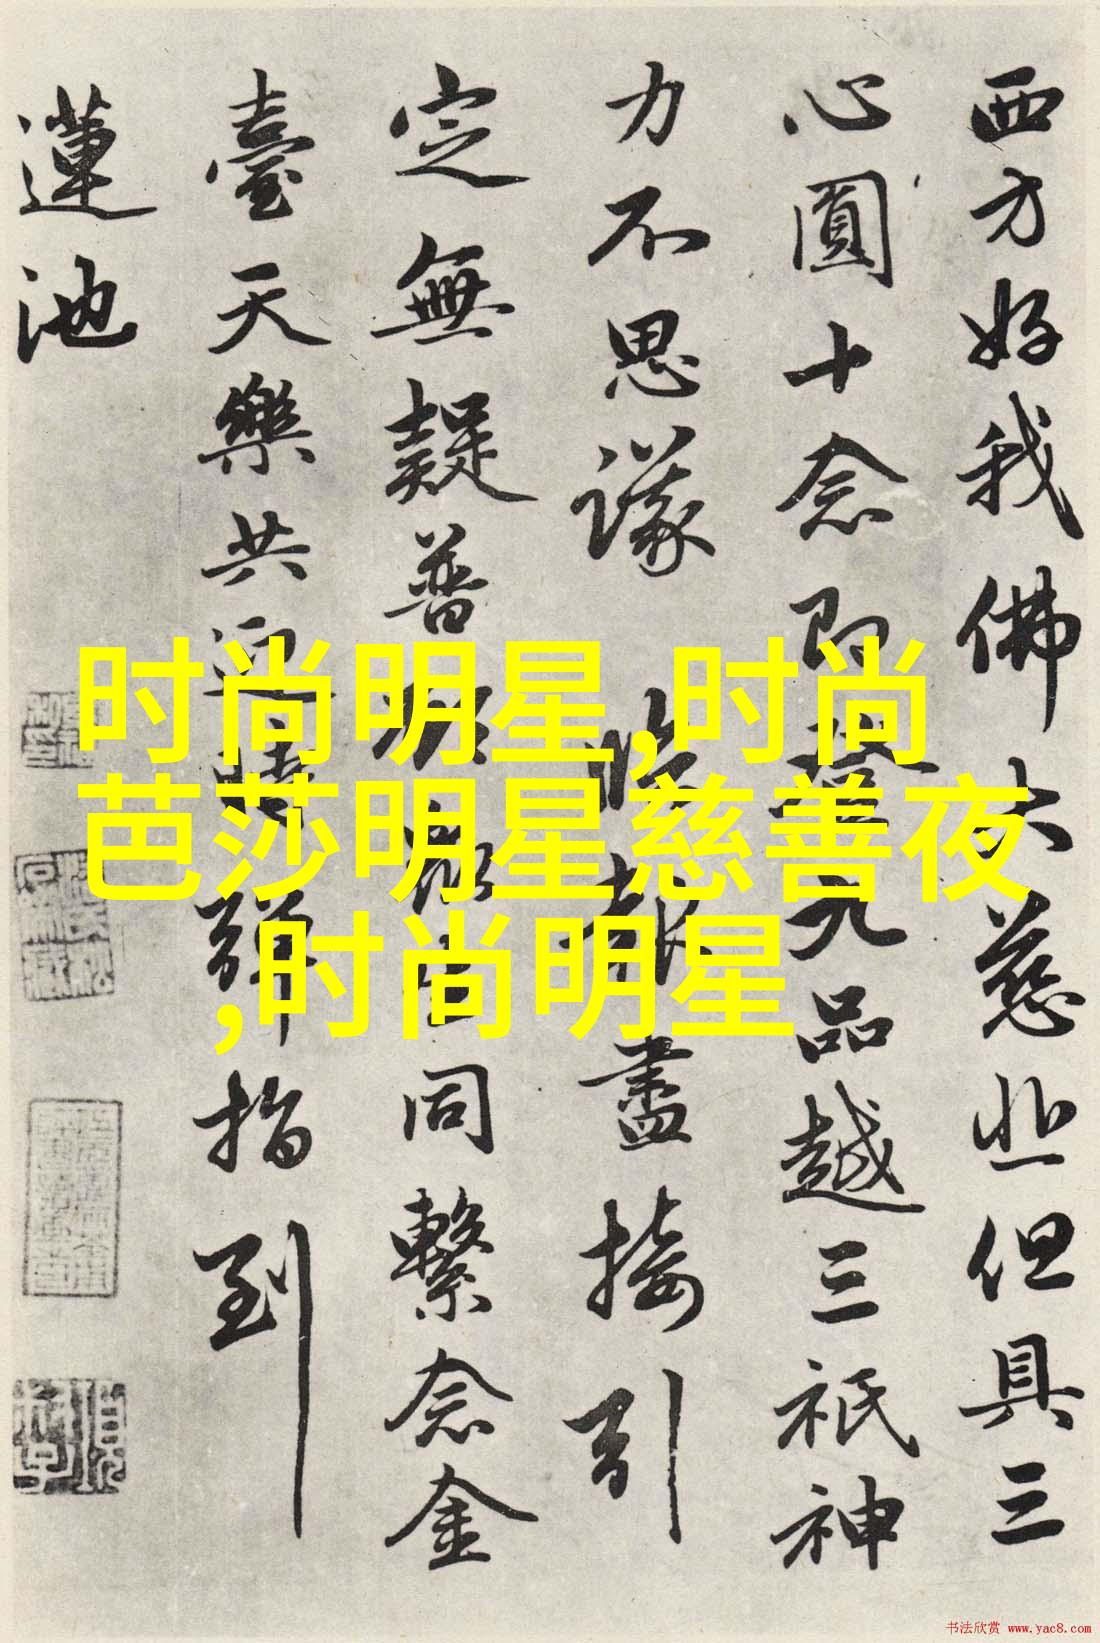 西方好我佛大慈悲但具三
心圓十念即登九品越三祇神
力不思議 臨報盡接引
定無疑普願眾生同繫念金
臺天樂共迎時彈指到
蓮池
时尚明星,时尚
芭莎明星慈善夜
,时尚明星
书法欣赏 www.yac8.com